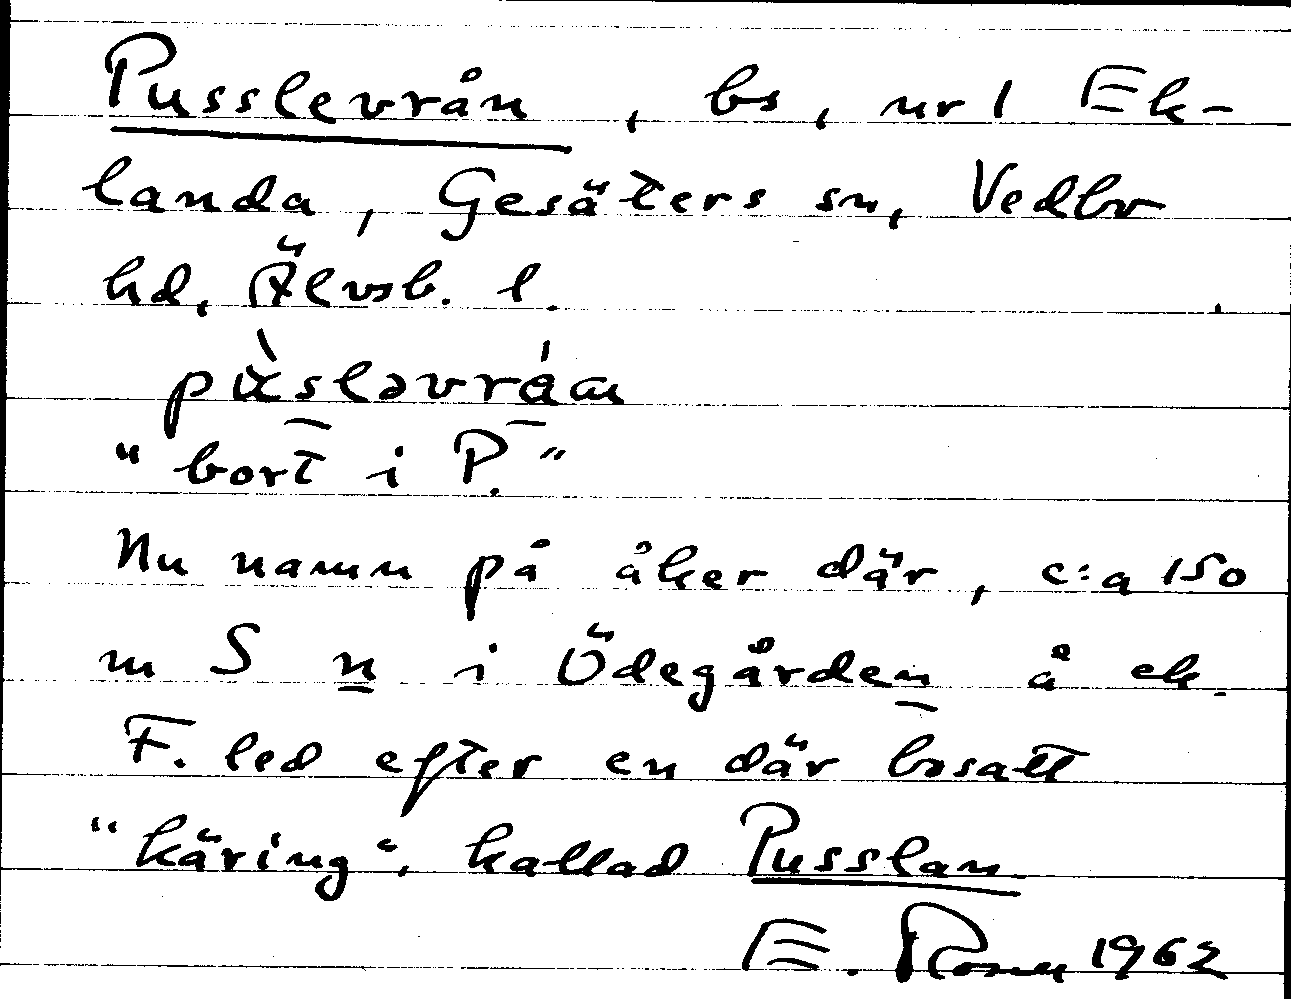 Pusslevrån, bs, nr 1 Ek-
landa, Gesäters sn, Vedbo
hd, Älvsb. l.
"bort i P."
Nu namn på åker där, c:a 150
m S n i Ödegården å ek.
F. led efter en där bosatt
"käring", kallad Pusslan
E. 1962